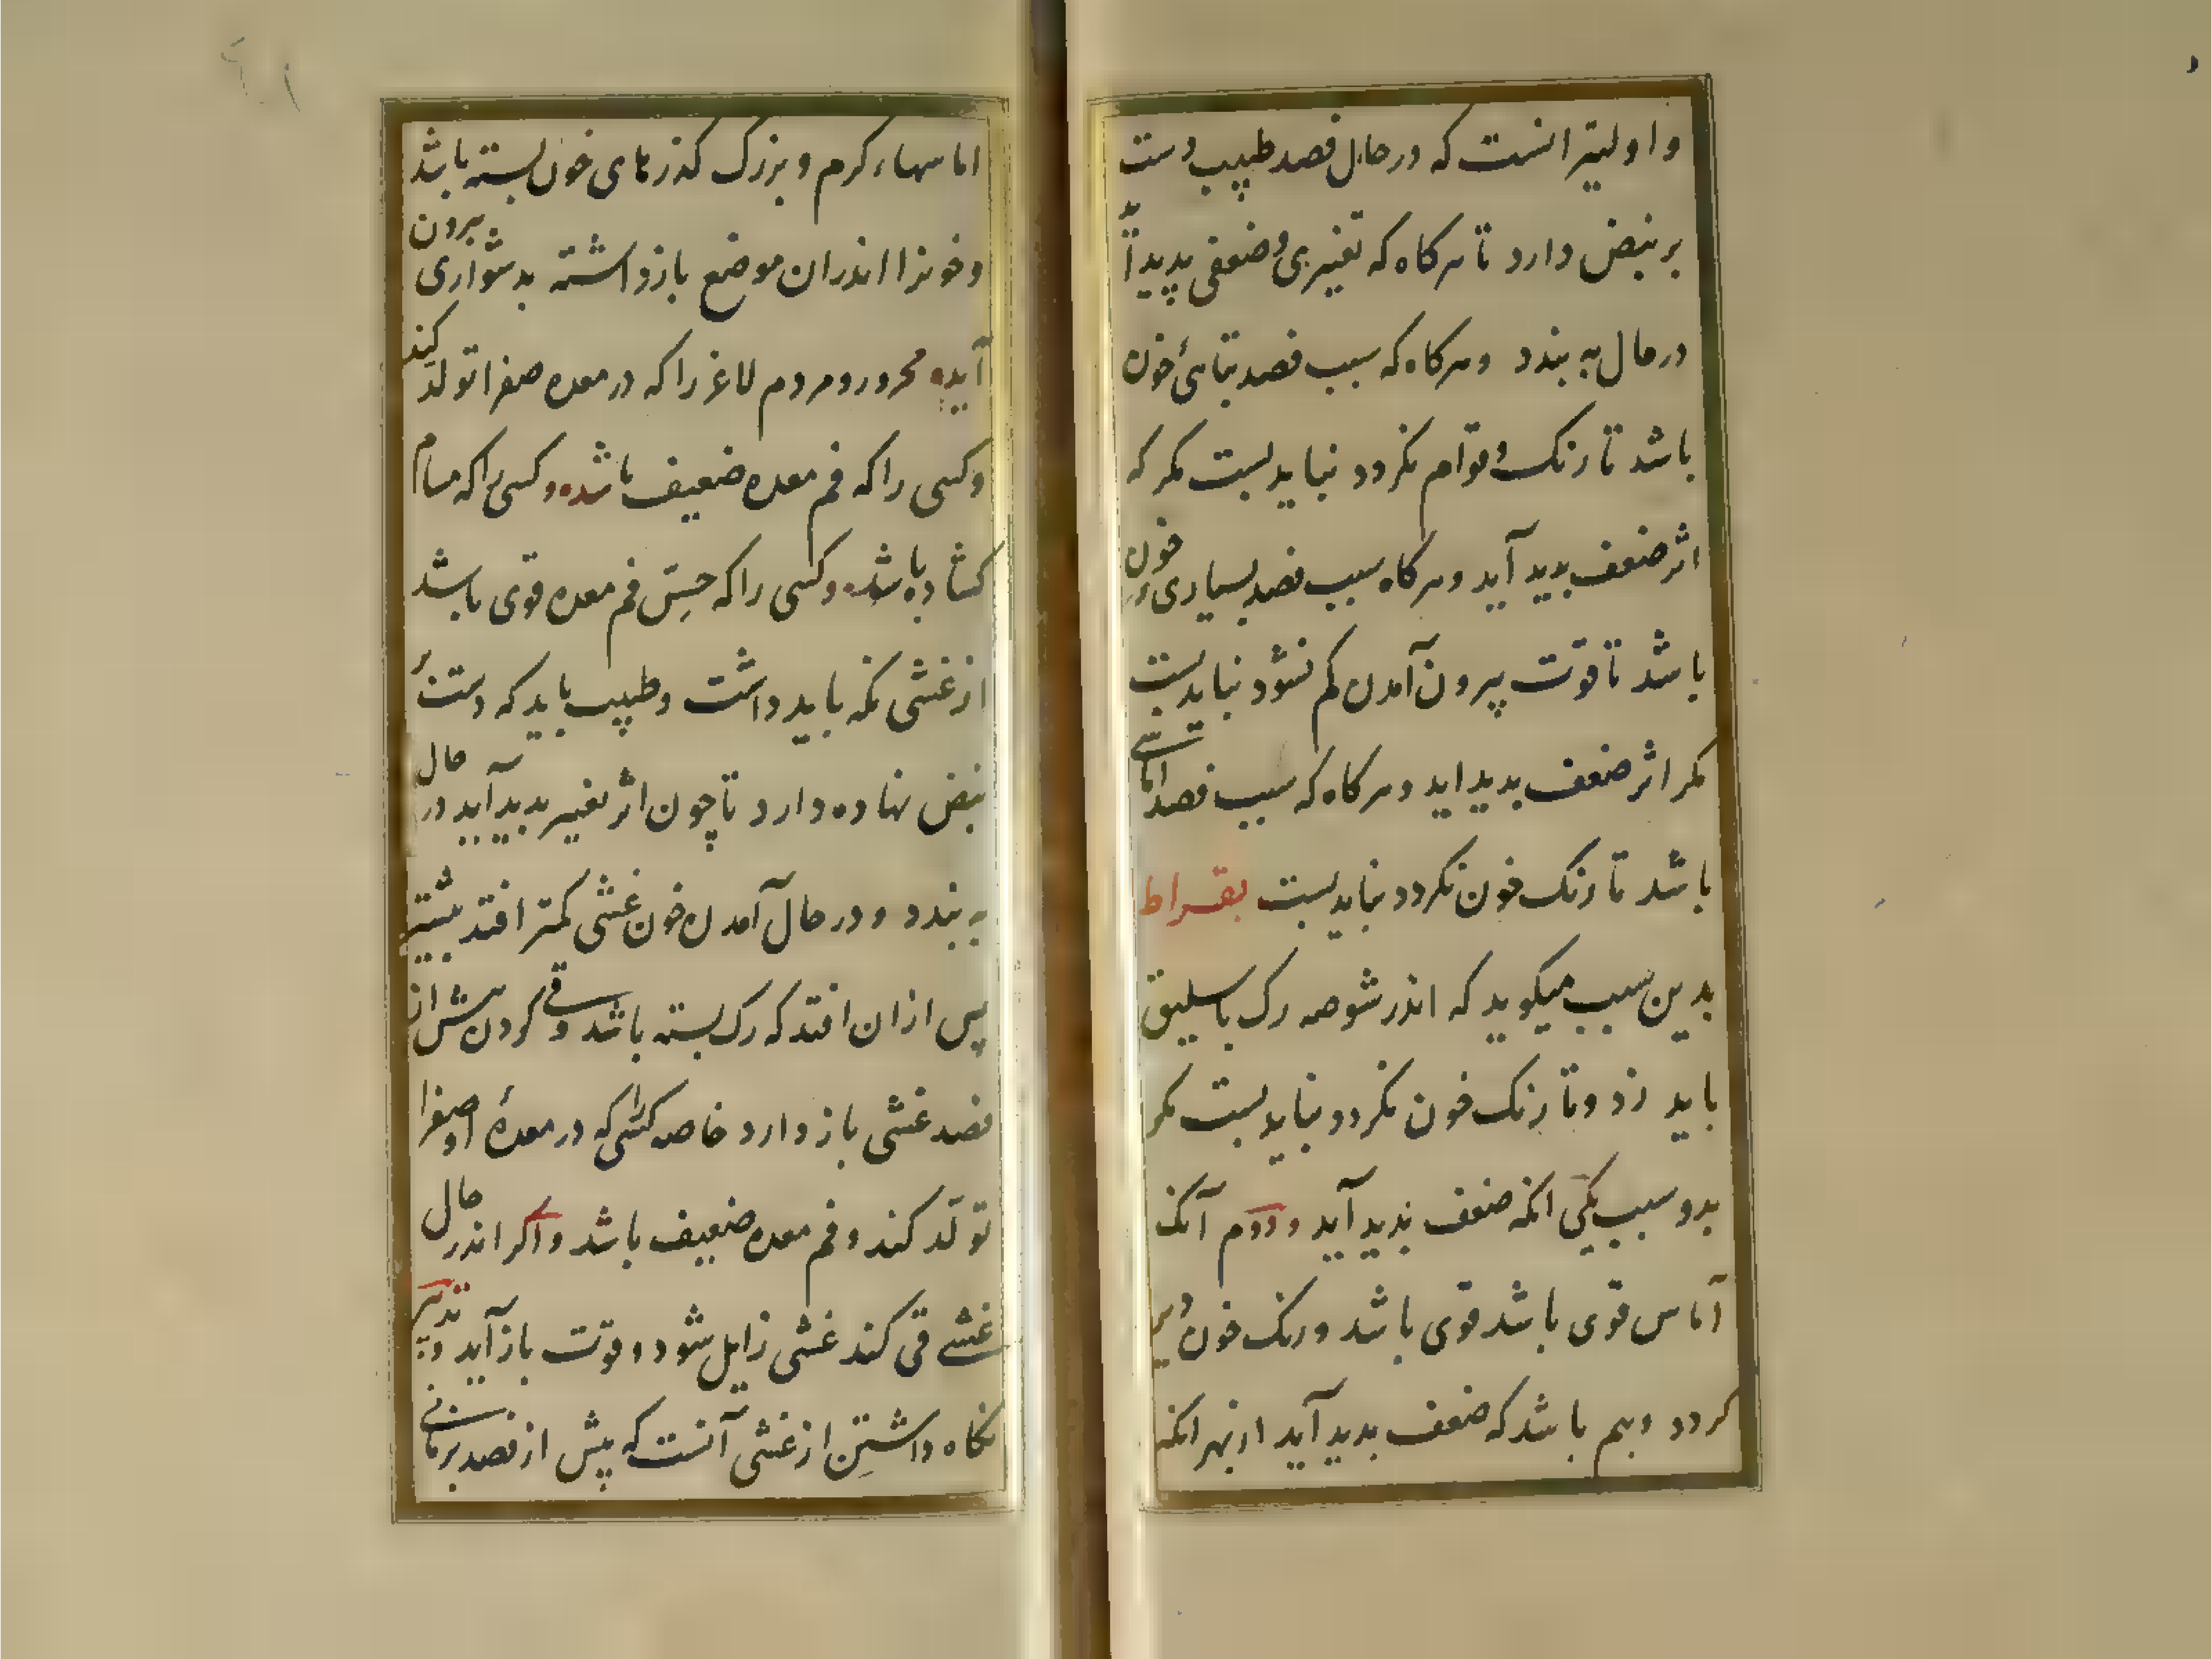 و اولیتر انست که در حال فصد طبیب دست
بر نبض دارد تا هرکاه که تغیری و ضعفی پدید آید
در حال به بندد و هرکاه که سبب فصد تباهیٔ خون
باشد تا رنک و قوام نکردد نباید بست مکر که
اثر ضعف بدید آید و هرکاه سبب فصد بسیاری خون
باشد تا قوت بیرون آمدن کم نشود نباید بست
مکر اثر ضعف بدید اید و هرکاه که سبب فصد اماسی
باشد تا رنک خون نکردد نباید بست بقراط
بدین سبب میکوید که اندر شوصه رک باسلیق
باید زد و تا رنک خون نکردد نباید بست مکر
بدو سبب یکی انکه ضعف بدید آید و دوم آنک
آماس قوی باشد قوی باشد و رنک خون دیر
کردد و بیم باشد که ضعف بدید آید از بهر انکه
اماسهاء کرم و بزرک کذرهای خون بسته باشد
و خونرا اندران موضع بازداشته بدشواری برون
آید محرور و مردم لاغر را که در معده صفرا تولد کند
و کسی را که فم معده ضعیف باشد و کسی را که مسام
کشاده باشد و کسی را که حسّ فم معده قوی باشد
از غشی نکه باید داشت و طبیب باید که دست بر
نبض نهاده دارد تا چون اثر تغییر بدید آید در حال
به بندد و در حال آمدن خون غشی کمتر افتد بیشتر
پس از ان افتد که رک بسته باشد و قی کردن پیش از
فصد غشی باز دارد خاصه کسی را که در معدهٔ او صفرا
تولّد کند و فم معده ضعیف باشد و اکر اندر حال
غشی قی کند غشی زایل شود و قوت باز آید و تدبیر
نکاه داشتن از غشی آنست که پیش از فصد بزمانی